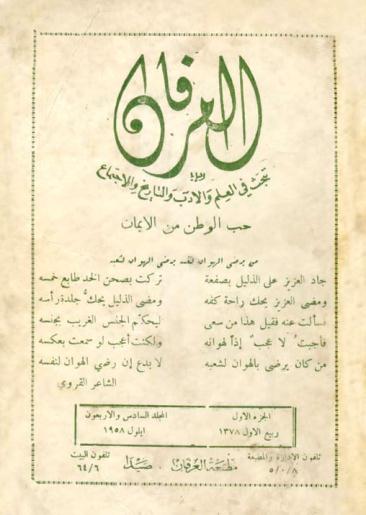 العرفان
تبحث في العلم والأدب والتاريخ والاجتماع
حب الوطن من الايمان
من يرضى الهوان لنفسه يرضى الهوان لشعبه
جاد العزيز على الذليل بصفعة تركت بصحن الخد طابع خمسه
ومضى العزيز يحك راحة كفه ومضى الذليل يحكُّ جلدة رأسه
فسألت عنه فقيل هذا من سعى ليحكّم الجنس الغريب بجنسه
فأجبتُ لا عجبٌ إذاً لهوانه ولكنت أعجب لو سمعت بعكسه
من كان يرضى بالهوان لشعبه لا بدع إن رضي الهوان لنفسه
الشاعر القروي
الجزء الاول المجلد السادس والاربعون
ربيع الاول ١٣٧٨ ايلول ١٩٥٨
تلفون الادارة والمطبعة ٥/٠/٨
مطبعة العرفان . صيدا
تلفون البيت ٦٤/٦